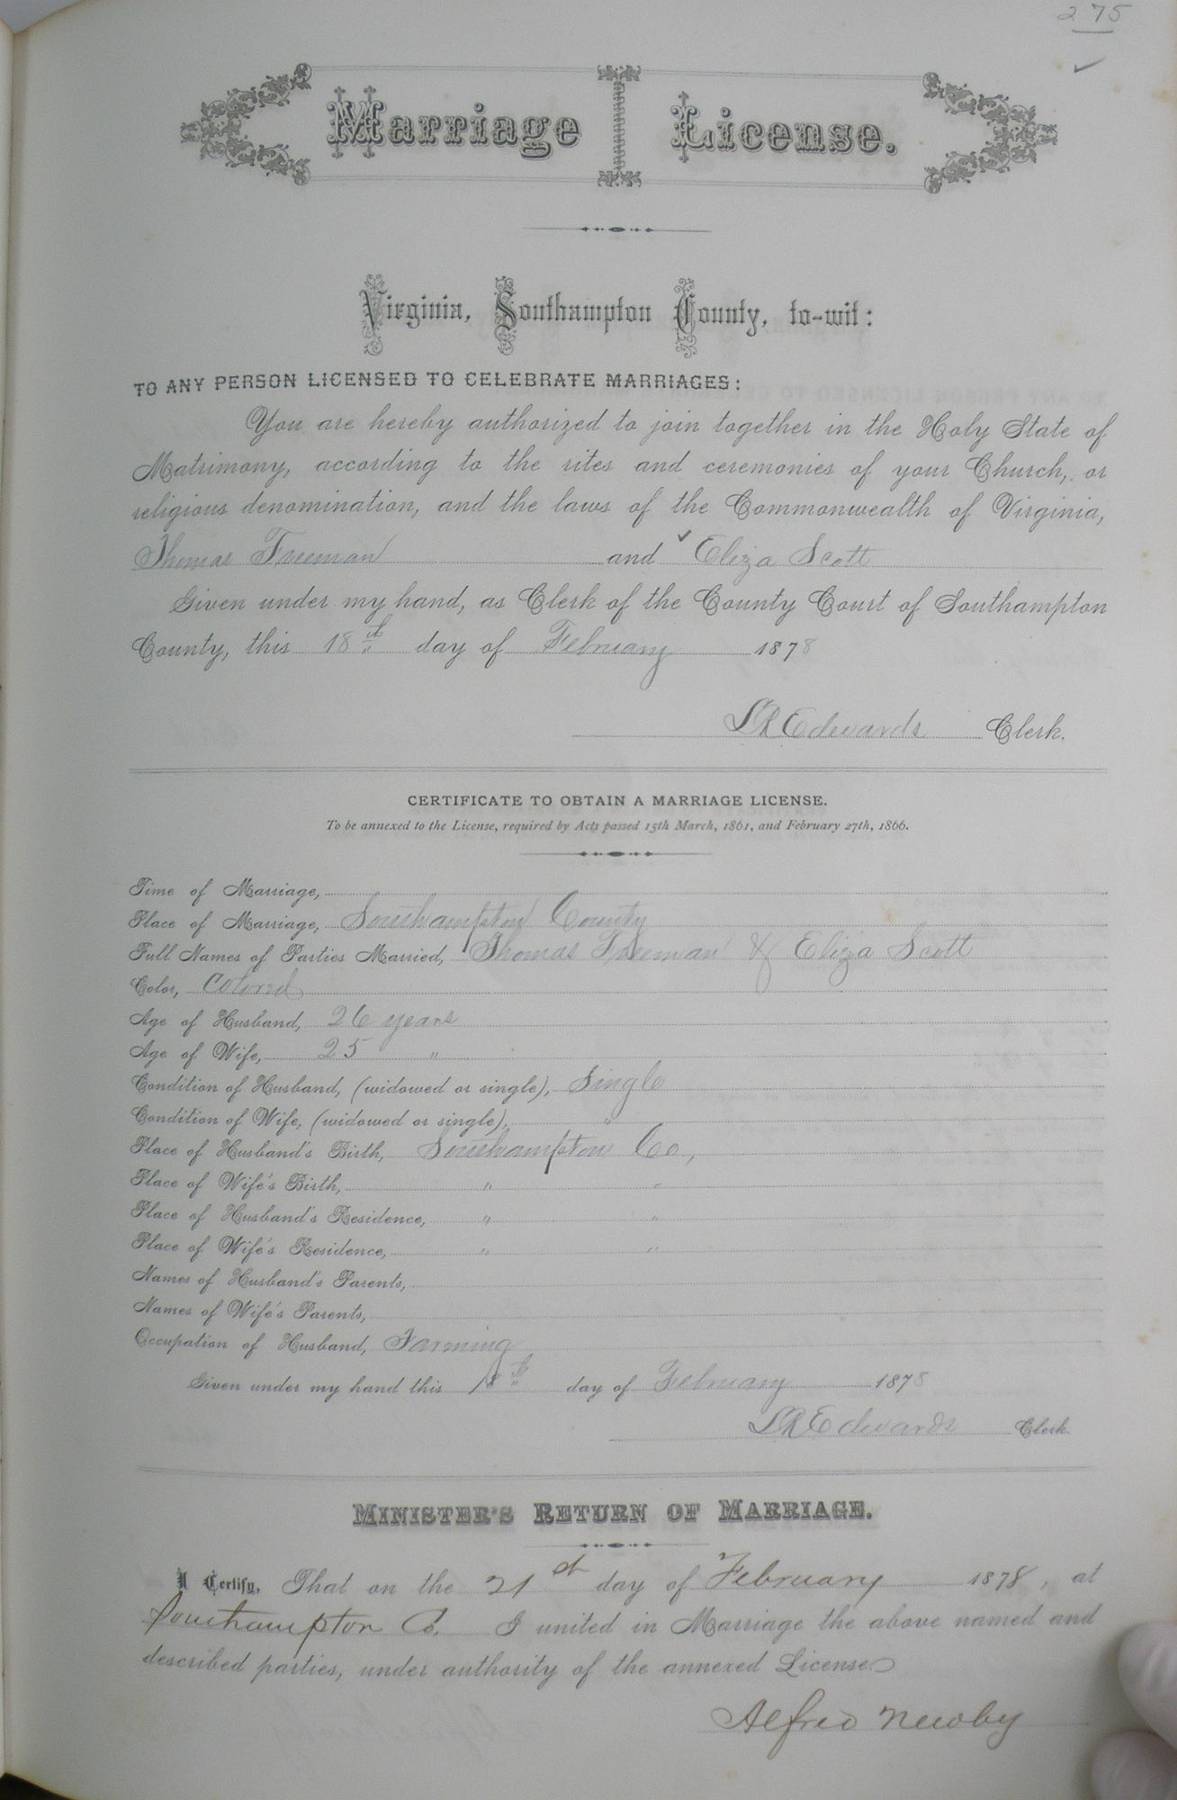 275
Marriage License.
Virginia, Southampton County, to-wit:
TO ANY PERSON LICENSED TO CELEBRATE MARRIAGES:
You are hereby authorized to join together in the Holy State of
Matrimony, according to the rites and ceremonies of your Church, or
religious denomination, and the laws of the Commonwealth of Virginia,
Thomas Freeman and Eliza Scott
Given under my hand, as Clerk of the County Court of Southampton
County, this 18th day of February 1878
LR Edwards Clerk.
CERTIFICATE TO OBTAIN A MARRIAGE LICENSE.
To be annexed to the License, required by Acts passed 15th March, 1861, and February 27th, 1866.
Time of Marriage,
Place of Marriage, Southampton County
Full Names of Parties Married, Thomas Freeman & Eliza Scott
Color, Colored
Age of Husband, 26 years
Age of Wife, 25 "
Condition of Husband, (widowed or single), Single
Condition of Wife, (widowed or single), "
Place of Husband's Birth, Southampton Co.,
Place of Wife's Birth, " "
Place of Husband's Residence, " "
Place of Wife's Residence, " "
Names of Husband's Parents,
Names of Wife's Parents,
Occupation of Husband, Farming
Given under my hand this 18th day of February 1878
LR Edwards Clerk.
MINISTER'S RETURN OF MARRIAGE.
I Certify, That on the 21st day of February 1878, at
Southampton Co. I united in Marriage the above named and
described parties, under authority of the annexed License
Alfred Newby